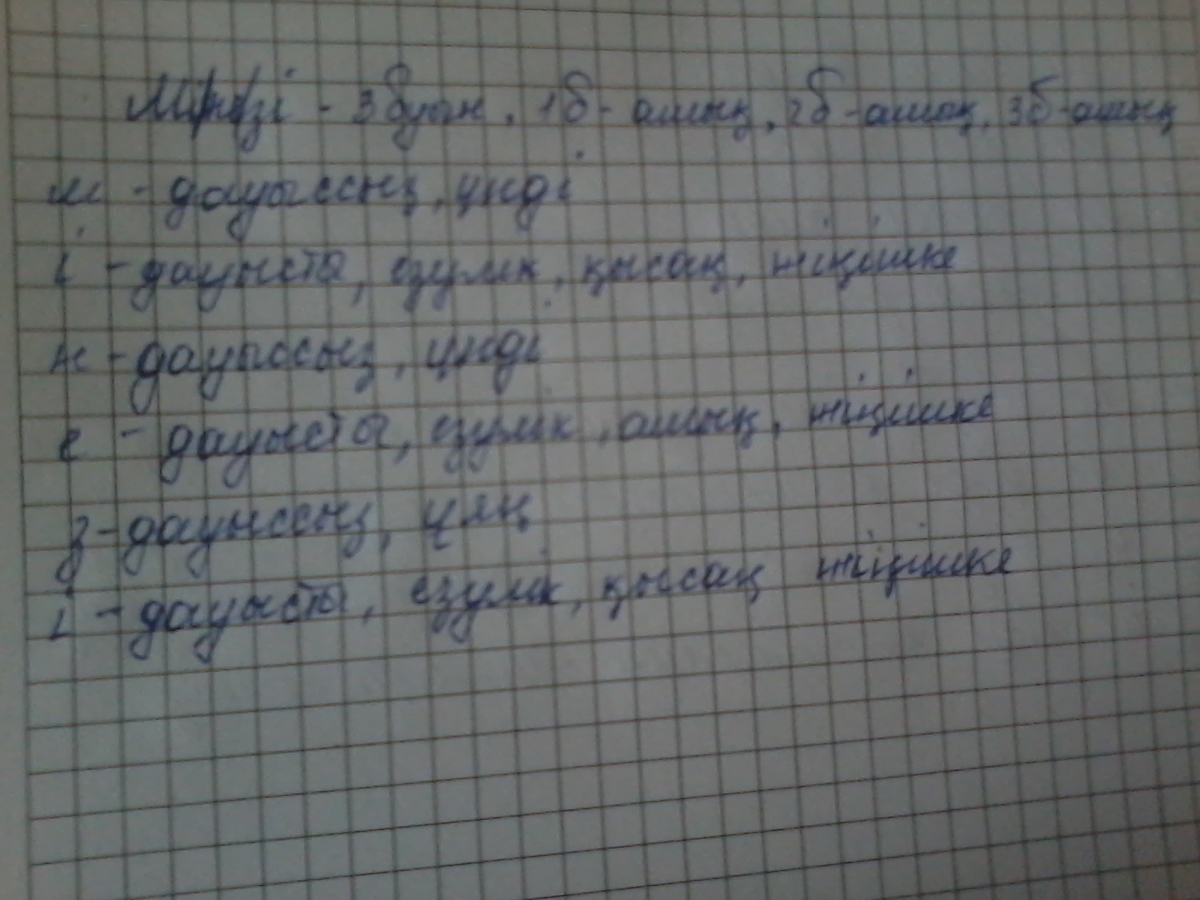 Мінезі - 3 буын, 1б - ашық, 2б - ашық, 3б - ашық
м - дауыссыз, үнді
і - дауысты, езулік, қысаң, жіңішке
н - дауыссыз, үнді
е - дауысты, езулік, ашық, жіңішке
з - дауыссыз, ұяң
і - дауысты, езулік, қысаң жіңішке